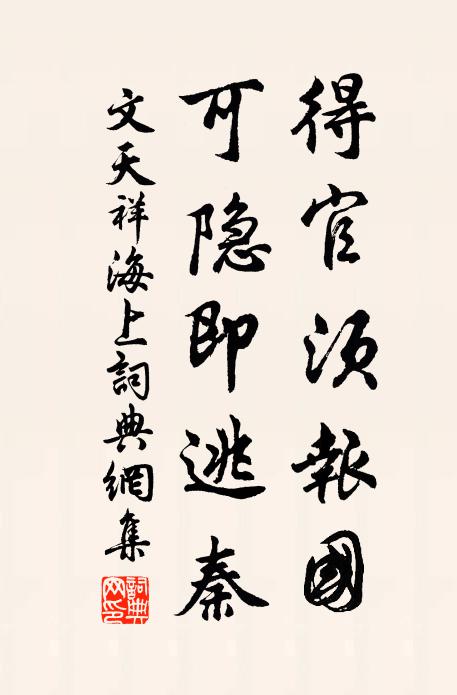 得官須報國
可隐即逃秦
文天祥海上詞典網集
詞典網印